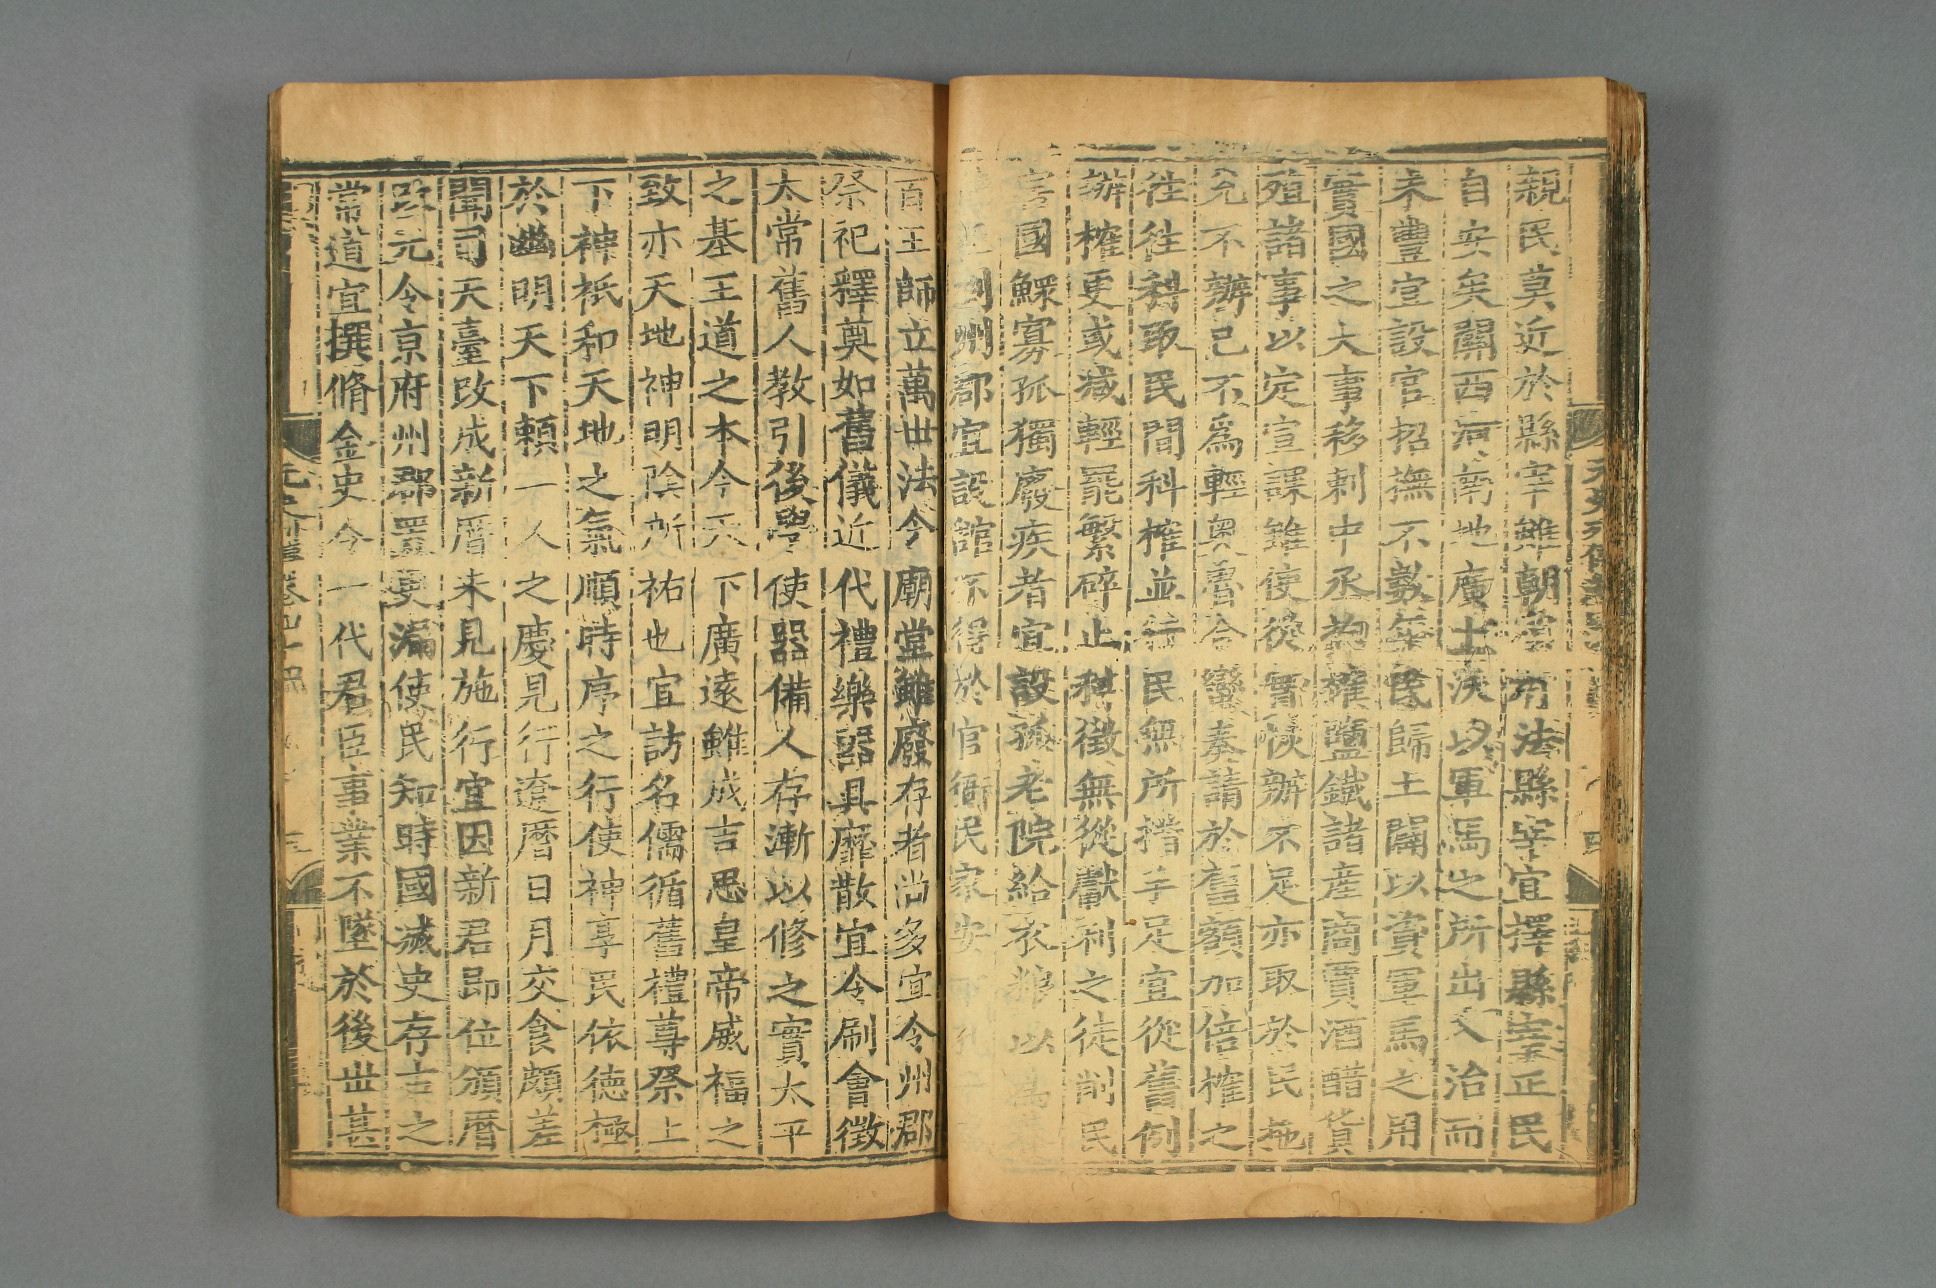 親民莫近於縣宰雖朝當有法縣宰宜擇縣宰正民
自安矣關西河南地廣土沃以軍馬之所出入治而
未豐宜設官招撫不數年民歸土闢以資軍馬之用
實國之大事移剌中丞拘榷鹽鐵諸產商賈酒醋貨
殖諸事以定宣課雖使從實恢辦不足亦取於民拖
兌不辦已不爲輕奧魯合蠻奏請於舊額加倍榷之
往往科取民間科榷並行民無所措手足宜從舊例
辦榷更或減輕罷繁碎止科徵無從獻利之徒削民
害國鰥寡孤獨廢疾者宜設孤老院給衣糧以爲
至州郡宜設館不得於官衙民家安
百王師立萬世法今廟堂雖廢存者尚多宜令州郡
祭祀釋奠如舊儀近代禮樂器具靡散宜令刷會徵
太常舊人教引後學使器備人存漸以修之實太平
之基王道之本今天下廣遠雖成吉思皇帝威福之
致亦天地神明陰所祐也宜訪名儒循舊禮尊祭上
下神祇和天地之氣順時序之行使神享民依德極
於幽明天下賴一人之慶見行遼曆日月交食頗差
聞司天臺改成新曆未見施行宜因新君即位頒曆
改元令京府州郡置更漏使民知時國滅史存古之
常道宜撰脩金史令一代君臣事業不墜於後世甚